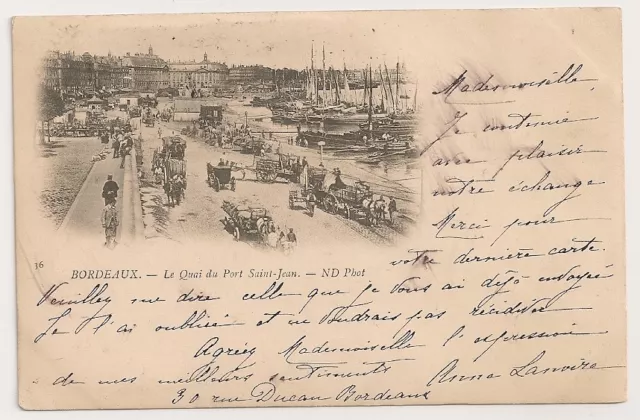 Mademoiselle,
Je continue
avec plaisir
notre échange
Merci pour
votre dernière carte.
16
BORDEAUX. — Le Quai du Port Saint-Jean. — ND Phot
Veuillez me dire celle que je vous ai déjà envoyée
Je l'ai oubliée et ne voudrais pas récidiver
Agréez Mademoiselle l'expression
de mes meilleurs sentiments
Anna
30 rue Ducau Bordeaux